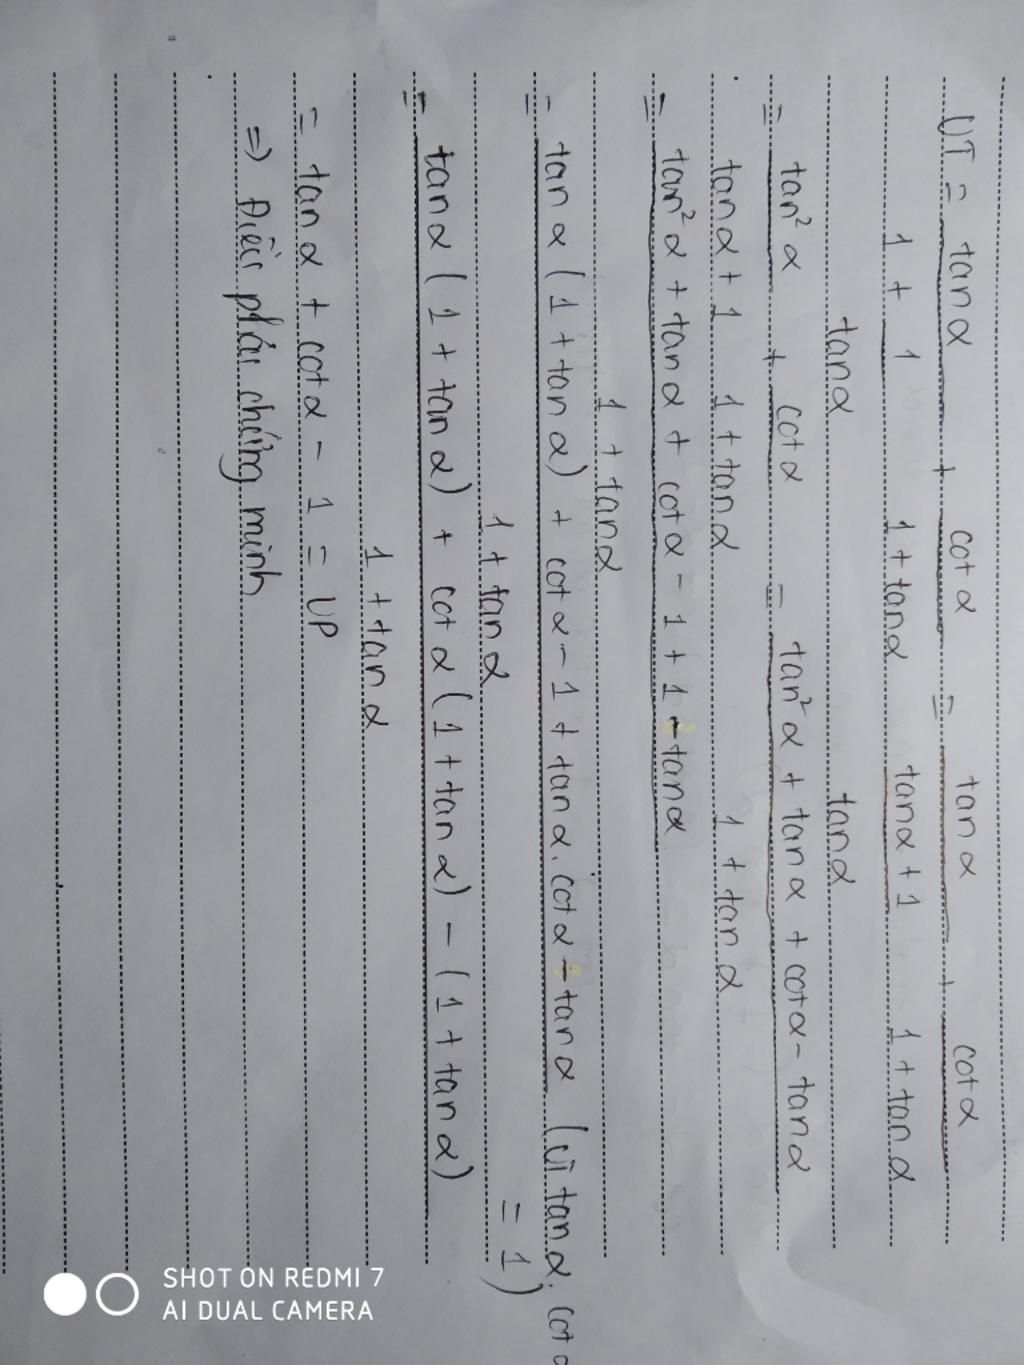 VT = tanα + cotα = tanα + cotα
1 + 1 1 + tanα tanα + 1 1 + tanα
tanα tanα
= tan²α + cotα = tan²α + tanα + cotα - tanα
tanα + 1 1 + tanα 1 + tanα
= tan²α + tanα + cotα - 1 + 1 - tanα
1 + tanα
= tanα (1 + tanα) + cotα - 1 + tanα.cotα - tanα (vì tanα.cotα
1 + tanα = 1)
= tanα (1 + tanα) + cotα (1 + tanα) - (1 + tanα)
1 + tanα
= tanα + cotα - 1 = VP
=) Điều phải chứng minh
SHOT ON REDMI 7
AI DUAL CAMERA